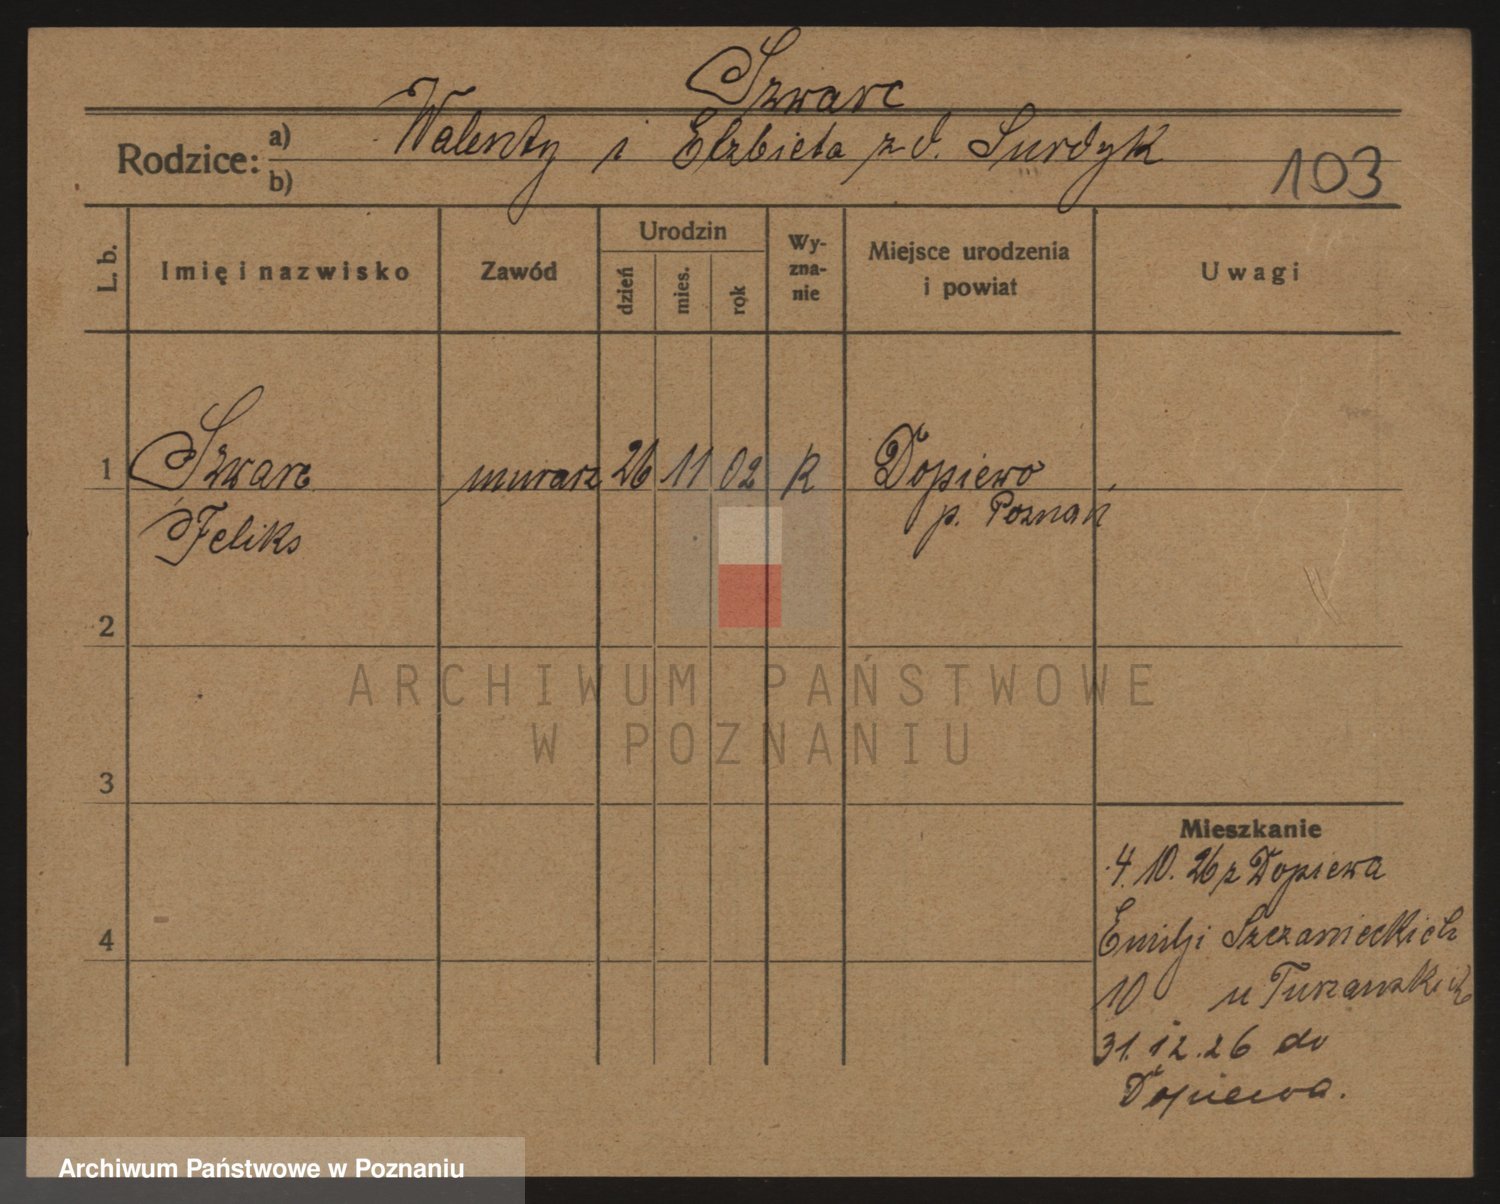 Szwarc
Rodzice: a) Walenty i Elzbieta z d. Surdyk
b)
103
L. b.
Imię i nazwisko
Zawód
Urodzin
dzień
mies.
rok
Wy-
zna-
nie
Miejsce urodzenia
i powiat
Uwagi
1 Szwarc murarz 26 11 02 R Dopiewo
Feliks p. Poznań
2
3
4
Mieszkanie
4. 10. 26 z Dopiewa
Emilji Szczanieckich
10 u
31. 12. 26 do
Dopiewa.
ARCHIWUM PAŃSTWOWE
W POZNANIU
Archiwum Państwowe w Poznaniu